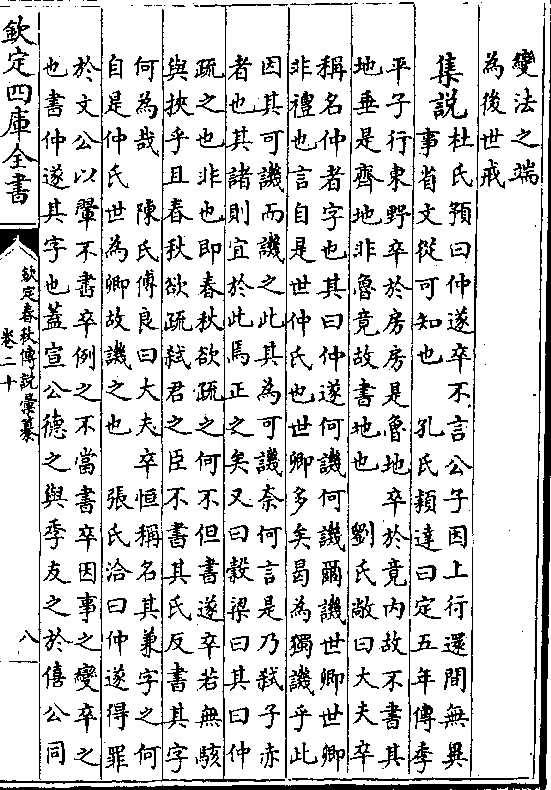 變法之端
為後世戒
集說杜氏預曰仲遂卒不言公子因上行還間無異
事省文從可知也　孔氏頴達曰定五年傳季
平子行東野卒於房房是魯地卒於竟内故不書其
地垂是齊地非魯竟故書地也　劉氏敞曰大夫卒
稱名仲者字也其曰仲遂何譏何譏爾譏世卿世卿
非禮也言自是世仲氏也世卿多矣曷為獨譏乎此
因其可譏而譏之此其為可譏奈何言是乃弑子赤
者也其諸則宜於此焉正之矣又曰穀梁曰其曰仲
疏之也非也即春秋欲疏之何不但書遂卒若無駭
與挾乎且春秋欲疏弑君之臣不書其氏反書其字
何為哉　陳氏傅良曰大夫卒恒稱名其兼字之何
自是仲氏世為卿故譏之也　張氏洽曰仲遂得罪
於文公以翬不書卒例之不當書卒因事之變卒之
也書仲遂其字也蓋宣公德之與季友之於僖公同
欽定四庫全書
欽定春秋傳說彙纂
卷二十
八